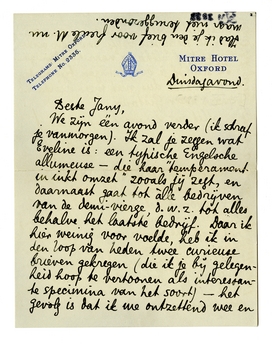 Had ik je den brief voor Greshoff nu
maar niet teruggezonden.
TELEGRAMS: MITRE OXFORD.
TELEPHONE NO. 2335.
MITRE HOTEL
OXFORD
Dinsdagavond.
Beste Jany,
We zijn één avond verder (ik schreef
je vanmorgen). Ik zal je zeggen wat
Eveline is: een typische Engelsche
allumeuse – die haar temperament
"in inkt omzet" zooals zij zegt, en
daarnaast gaat tot alle bedrijven
van de demi-vierge, d.w.z. tot alles
behalve het laatste bedrijf. Daar ik
hier weinig voor voelde, heb ik in
den loop van heden twee curieuse
brieven gekregen (die ik je bij gelegen-
heid hoop te vertoonen als interessan-
te specimina van het soort) – het
gevolg is dat ik me ontzettend wee en